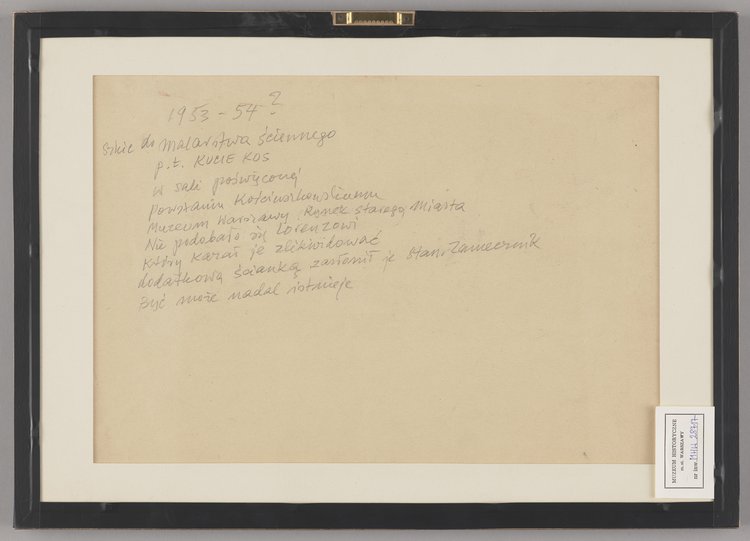 1953-54?
szkic do malarstwa ściennego
p.t. KUCIE KOS
w sali poświęconej
powstaniu Kościuszkowskiemu
Muzeum Warszawy, Rynek Starego Miasta
Nie podobało się Lorenzowi
który kazał je zlikwidować
dodatkową ścianką zasłonił je Stan. Zamecznik
Być może nadal istnieje
MUZEUM HISTORYCZNE
m.st. WARSZAWY
nr inw. MHW